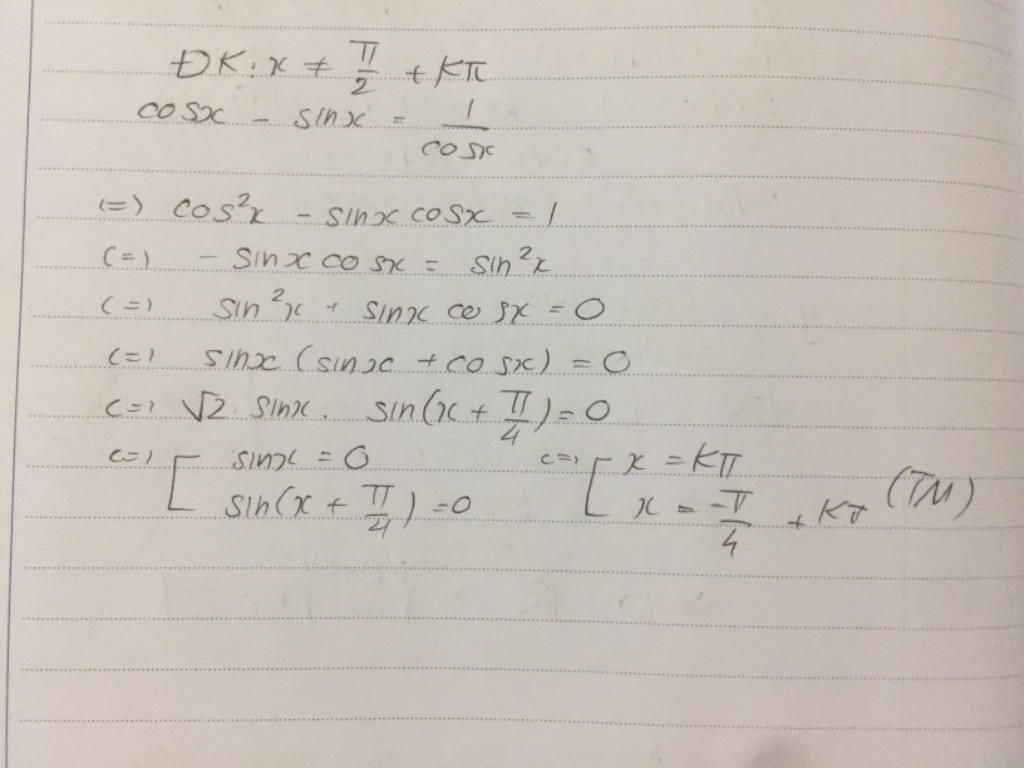 ĐK: x ≠ π/2 + Kπ
cosx - sinx = 1/cosx
(=) cos²x - sinx cosx = 1
(=) - sinx cosx = sin²x
(=) sin²x + sinx cosx = 0
(=) sinx (sinx + cosx) = 0
(=) √2 sinx. sin(x + π/4) = 0
(=) [ sinx = 0 (=) [ x = Kπ
sin(x + π/4) = 0 x = -π/4 + Kπ (TM)